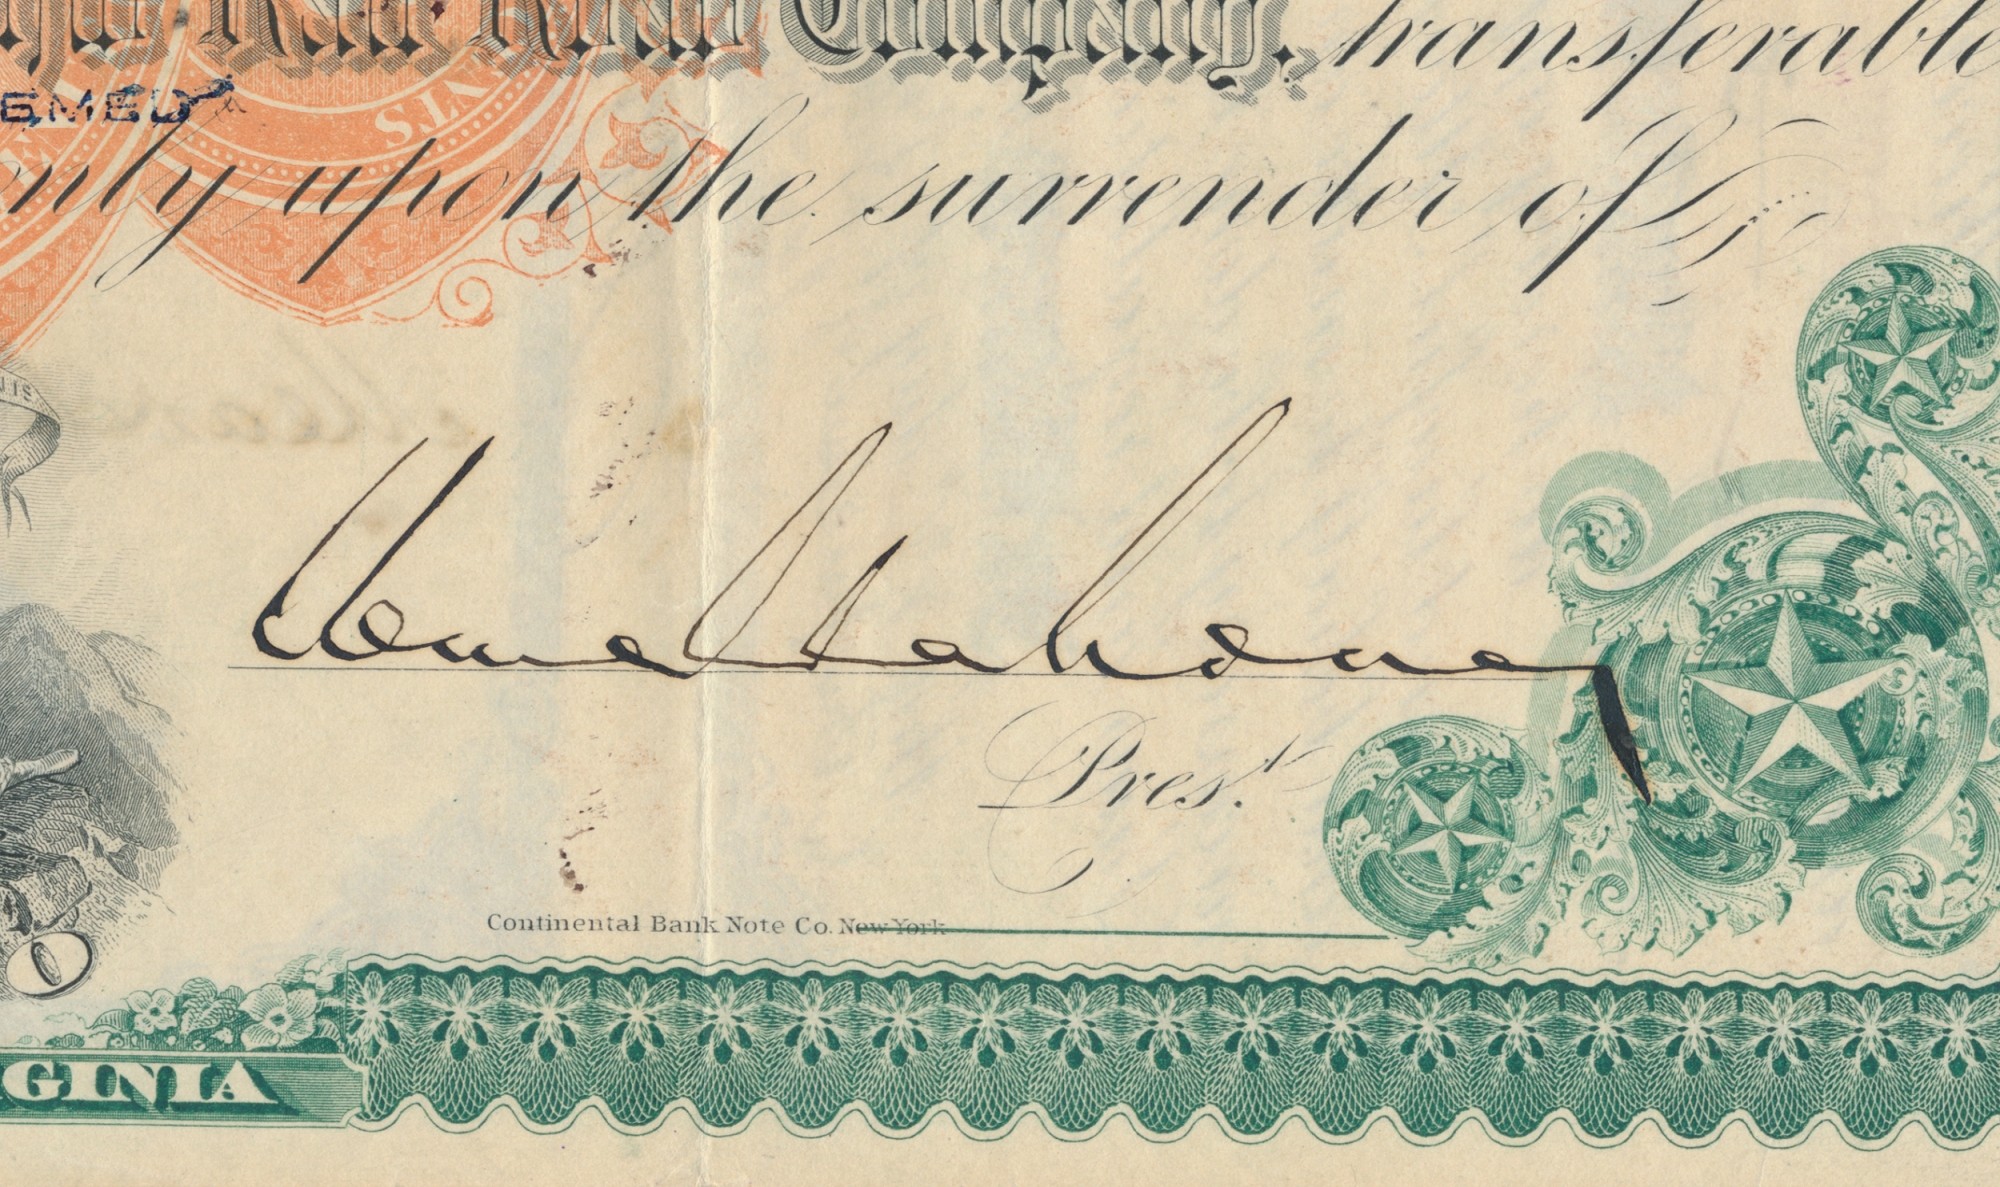 Rail Road Company, transferable
EMED
NTS
nly upon the surrender of
William Mahone
Pres.t
Continental Bank Note Co. New York
GINIA